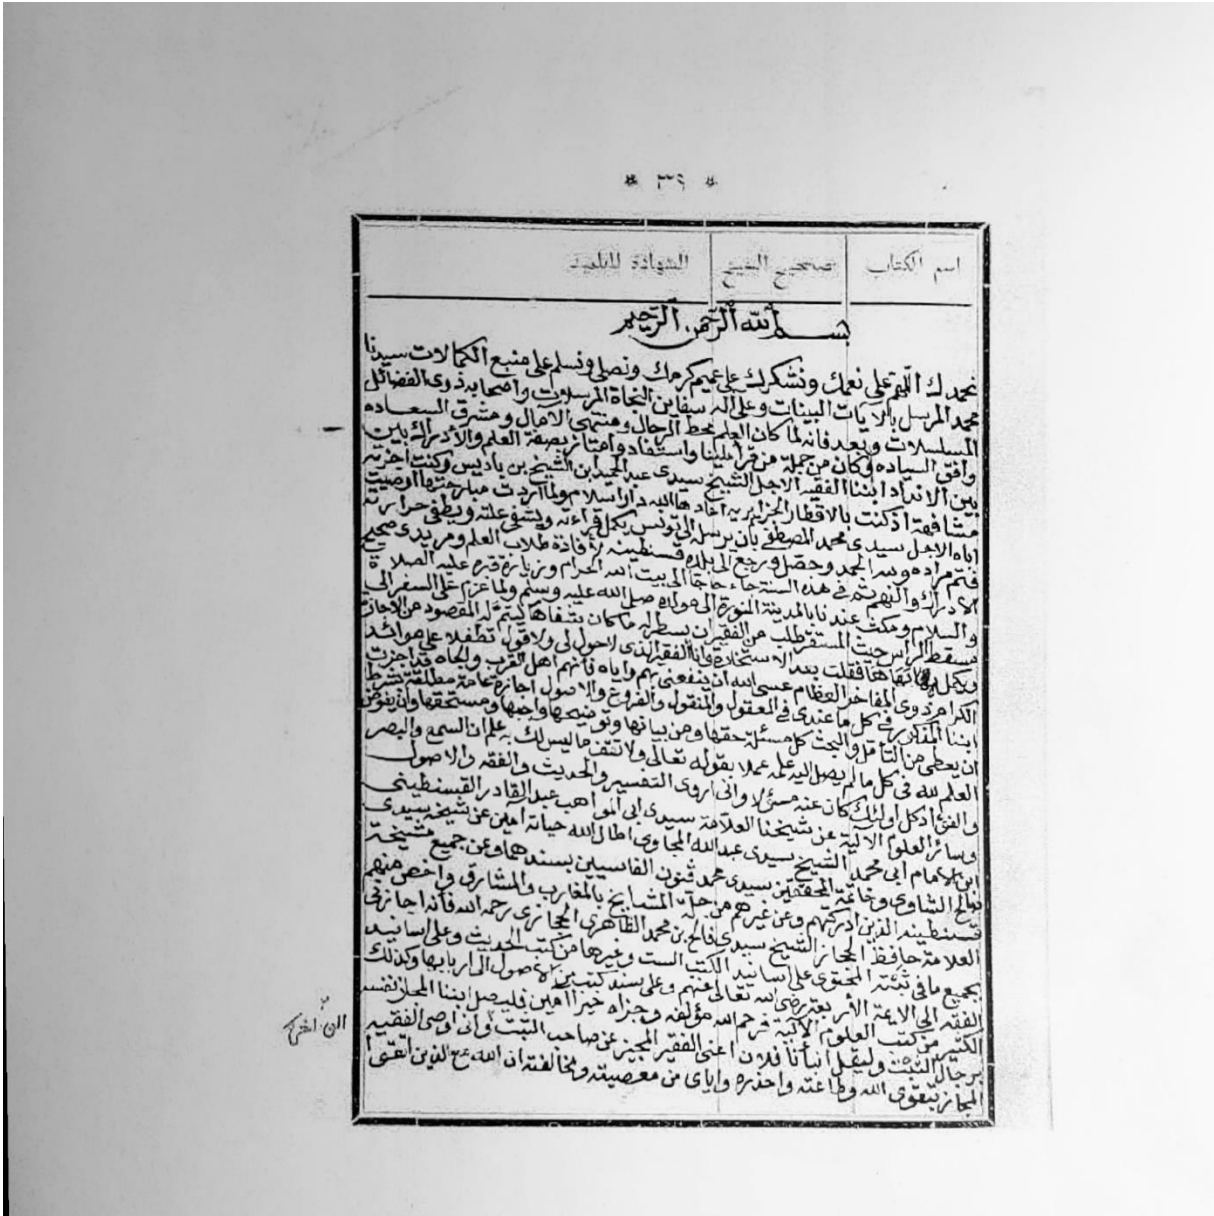 * ٣٩ *
اسم الكتاب تصحيح الشيخ الشهادة للتلميذ
بسم الله الرحمن الرحيم
نحمدك اللهم على نعمك ونشكرك على عميم كرمك ونصلي ونسلم على منبع الكمالات سيدنا
محمد المرسل بالآيات البينات وعلى اله سفاين النجاة المرسلات واصحابه ذوي الفضائل
المسلسلات وبعد فانه لما كان العلم محط الرحال ومنتهى الآمال ومشرق السعاده
وافق السياده وكان من جملة من قرأ علينا واستفاد وامتاز بصفة العلم والأدراك بين
بين الانداد ابننا الفقيه الاجل الشيخ سيدي عبد الحميد ابن الشيخ بن باديس وكنت اجزته
مشافهة اذ كنت بالاقطار الجزايريه اعادها الله دار اسلام ولما اردت مبارحتها اوصيت
اباه الاجل سيدي محمد المصطفى بان يرسله الى تونس يكمل قراءته ويشفي علته ويطفي حرارته
فتم مراده ولله الحمد وحصل ورجع الى بلده قسنطينه لأفادة طلاب العلم ومريدي صحيح
الادراك والفهم ثم في هذه السنة جاء حاجا الى بيت الله الحرام وزيارة قبره عليه الصلاة
والسلام ومكث عندنا بالمدينة المنورة الى مولده صلى الله عليه وسلم ولما عزم على السفر الى
مسقط الراس حيث المستقر طلب من الفقير ان يسطر له ما كان شفاها ليتم له المقصود من الاجازة
ويكمل فقلت بعد الاستخارة وانا الفقير الذي لا حول لي ولا قول تطفلا على موائد
الكرام ذوي المفاخر العظام عسى الله ان ينفعني بهم واياه فأنهم اهل القرب والجاه قد اجزت
ابننا المذكور في كل ما عندي في المعقول والمنقول والفروع والاصول اجازة عامة مطلقة بشرط
ان يعطي من التأمل والبحث كل مسئلة حقها ومن بيانها وتوضيحها واجبها ومستحقها وان يفوض
العلم لله في كل ما لم يصل اليه علمه عملا بقوله تعالى ولا تقف ما ليس لك به علم ان السمع والبصر
والفؤاد كل اولئك كان عنه مسئولا واني اروي التفسير والحديث والفقه والاصول
وسائر العلوم الآلية عن شيخنا العلامة سيدي ابي المواهب عبد القادر القسنطيني
ابن الامام ابي محمد الشيخ سيدي عبد الله المجاوي اطال الله حياته آمين عن شيخه سيدي
صالح الشاوي وخاتمة المحققين سيدي محمد قنون الفاسيين بسندهما وعن جميع مشيخة
قسنطينه الذين ادركتهم وعن غيرهم من جلة المشايخ بالمغارب والمشارق واخص منهم
العلامة حافظ الحجاز الشيخ سيدي فالح بن محمد الظاهري الحجازي رحمه الله فأنه اجازني
بجميع ما في ثبته المحتوي على اسانيد الكتب الست وغيرها من كتب الحديث وعلى اسانيد
الفقه الى الايمة الأربعة رضي الله تعالى عنهم وعلى سند كتب الاصول الى اربابها وكذلك
الكثير من كتب العلوم الآلية فرحم الله مؤلفه وجزاه خيرا آمين فليصل ابننا المجاز نفسه
برجال الثبت وليقل انبأنا فلان اعني الفقير المجيز عن صاحب الثبت واني اوصي الفقيه
المجاز بتقوى الله وطاعته واحذره واياي من معصيته ومخالفته ان الله مع الذين اتقوا